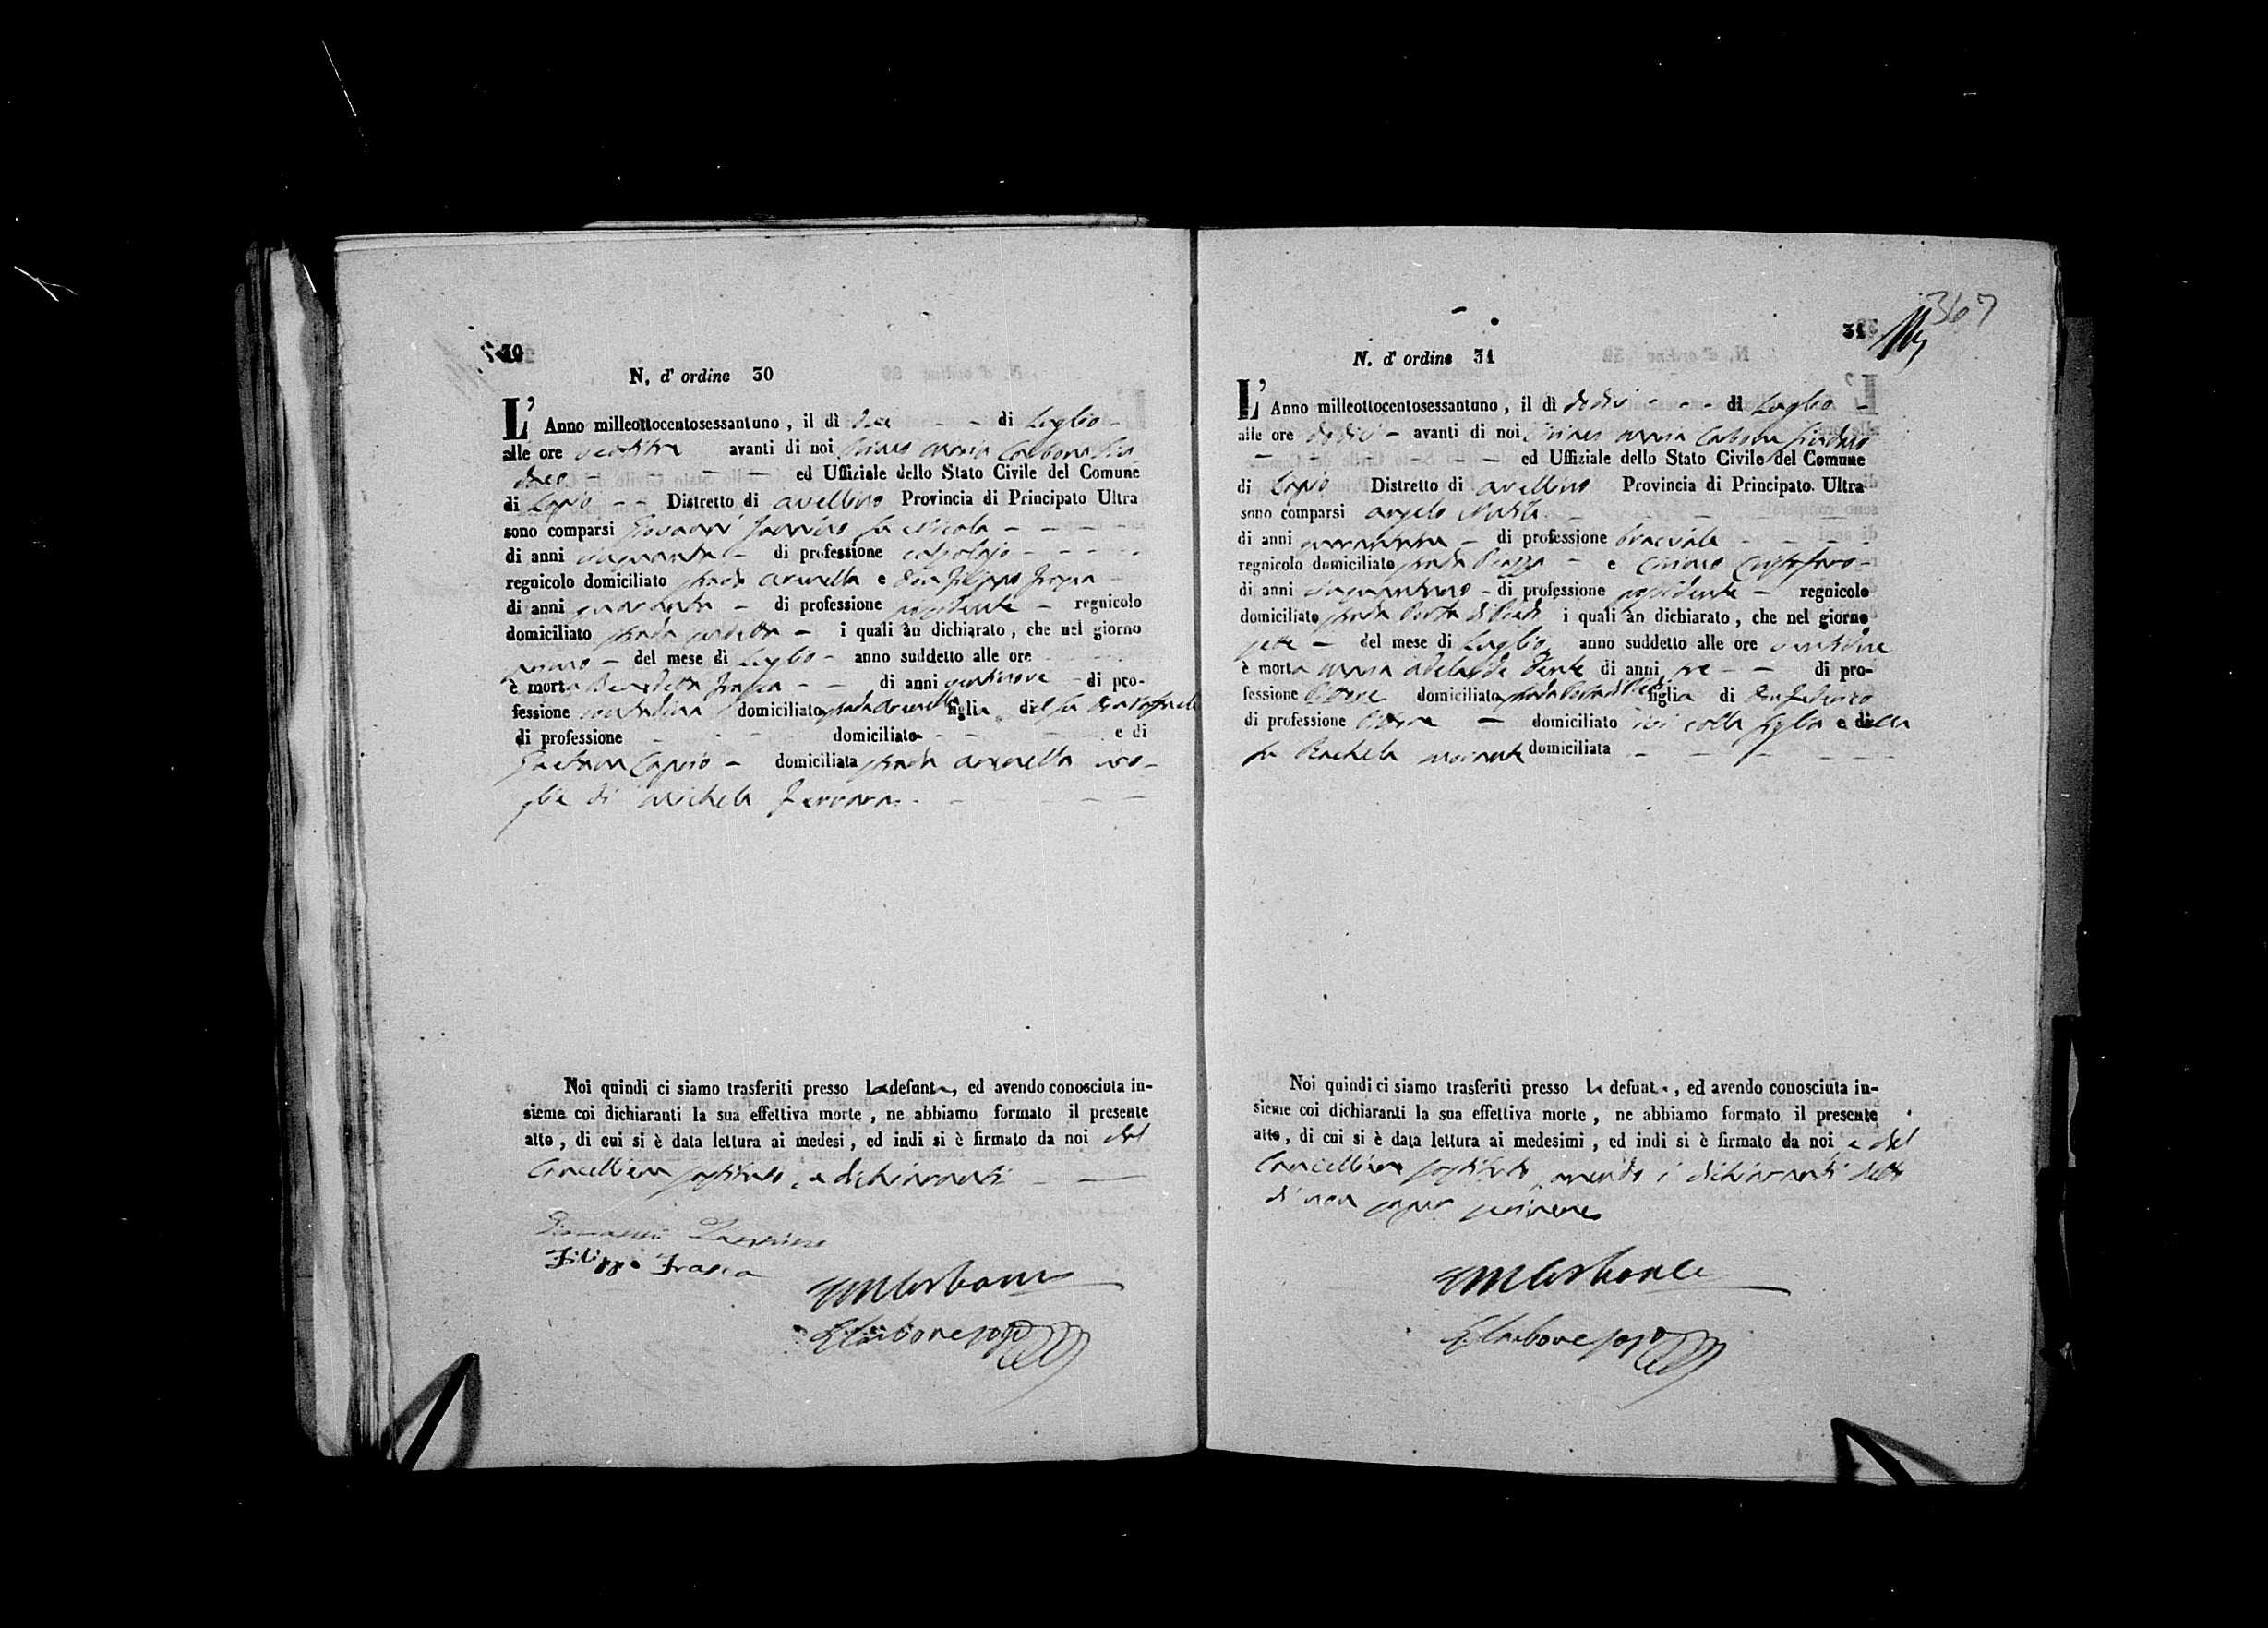 30
N. d' ordine 30
L' Anno milleottocentosessantuno, il dì di Luglio
alle ore avanti di noi Ciriaco Maria Carbone Sin
daco ed Uffiziale dello Stato Civile del Comune
di Lapio Distretto di Avellino Provincia di Principato Ultra
sono comparsi Giovanni fu Nicola
di anni cinquanta di professione
regnicolo domiciliato strada e Don Filippo Frasca
di anni quaranta di professione possidente regnicolo
domiciliato strada i quali àn dichiarato, che nel giorno
primo del mese di Luglio anno suddetto alle ore
è morta Benedetta Frasca di anni ventinove di pro-
fessione contadina domiciliato strada figlia del fu Don Raffaele
di professione domiciliato e di
Gaetana Caputo domiciliata strada mo-
glie di Michele Ferrara
Noi quindi ci siamo trasferiti presso la defunta, ed avendo conosciuta in-
sieme coi dichiaranti la sua effettiva morte, ne abbiamo formato il presente
atto, di cui si è data lettura ai medesi, ed indi si è firmato da noi dal
Cancelliere sostituto, e dichiaranti
Giovanni
Filippo Frasca
CMCarbone
Carbone sost
367
31
N. d' ordine 31
L' Anno milleottocentosessantuno, il dì dodici di Luglio
alle ore dodici avanti di noi Ciriaco Maria Carbone Sindaco
ed Uffiziale dello Stato Civile del Comune
di Lapio Distretto di Avellino Provincia di Principato Ultra
sono comparsi Angelo
di anni di professione bracciale
regnicolo domiciliato strada Piazza e Ciriaco Cristofaro
di anni di professione possidente regnicolo
domiciliato strada Porta di i quali àn dichiarato, che nel giorno
sette del mese di Luglio anno suddetto alle ore ventidue
è morta Maria Adelaide Dente di anni tre di pro-
fessione domiciliato strada figlia di Don Federico
di professione domiciliato ivi colla figlia e della
fu Rachela domiciliata
Noi quindi ci siamo trasferiti presso la defunta, ed avendo conosciuta in-
sieme coi dichiaranti la sua effettiva morte, ne abbiamo formato il presente
atto, di cui si è data lettura ai medesimi, ed indi si è firmato da noi e dal
Cancelliere sostituto, avendo i dichiaranti detto
di non saper scrivere
CMCarbone
Carbone sost